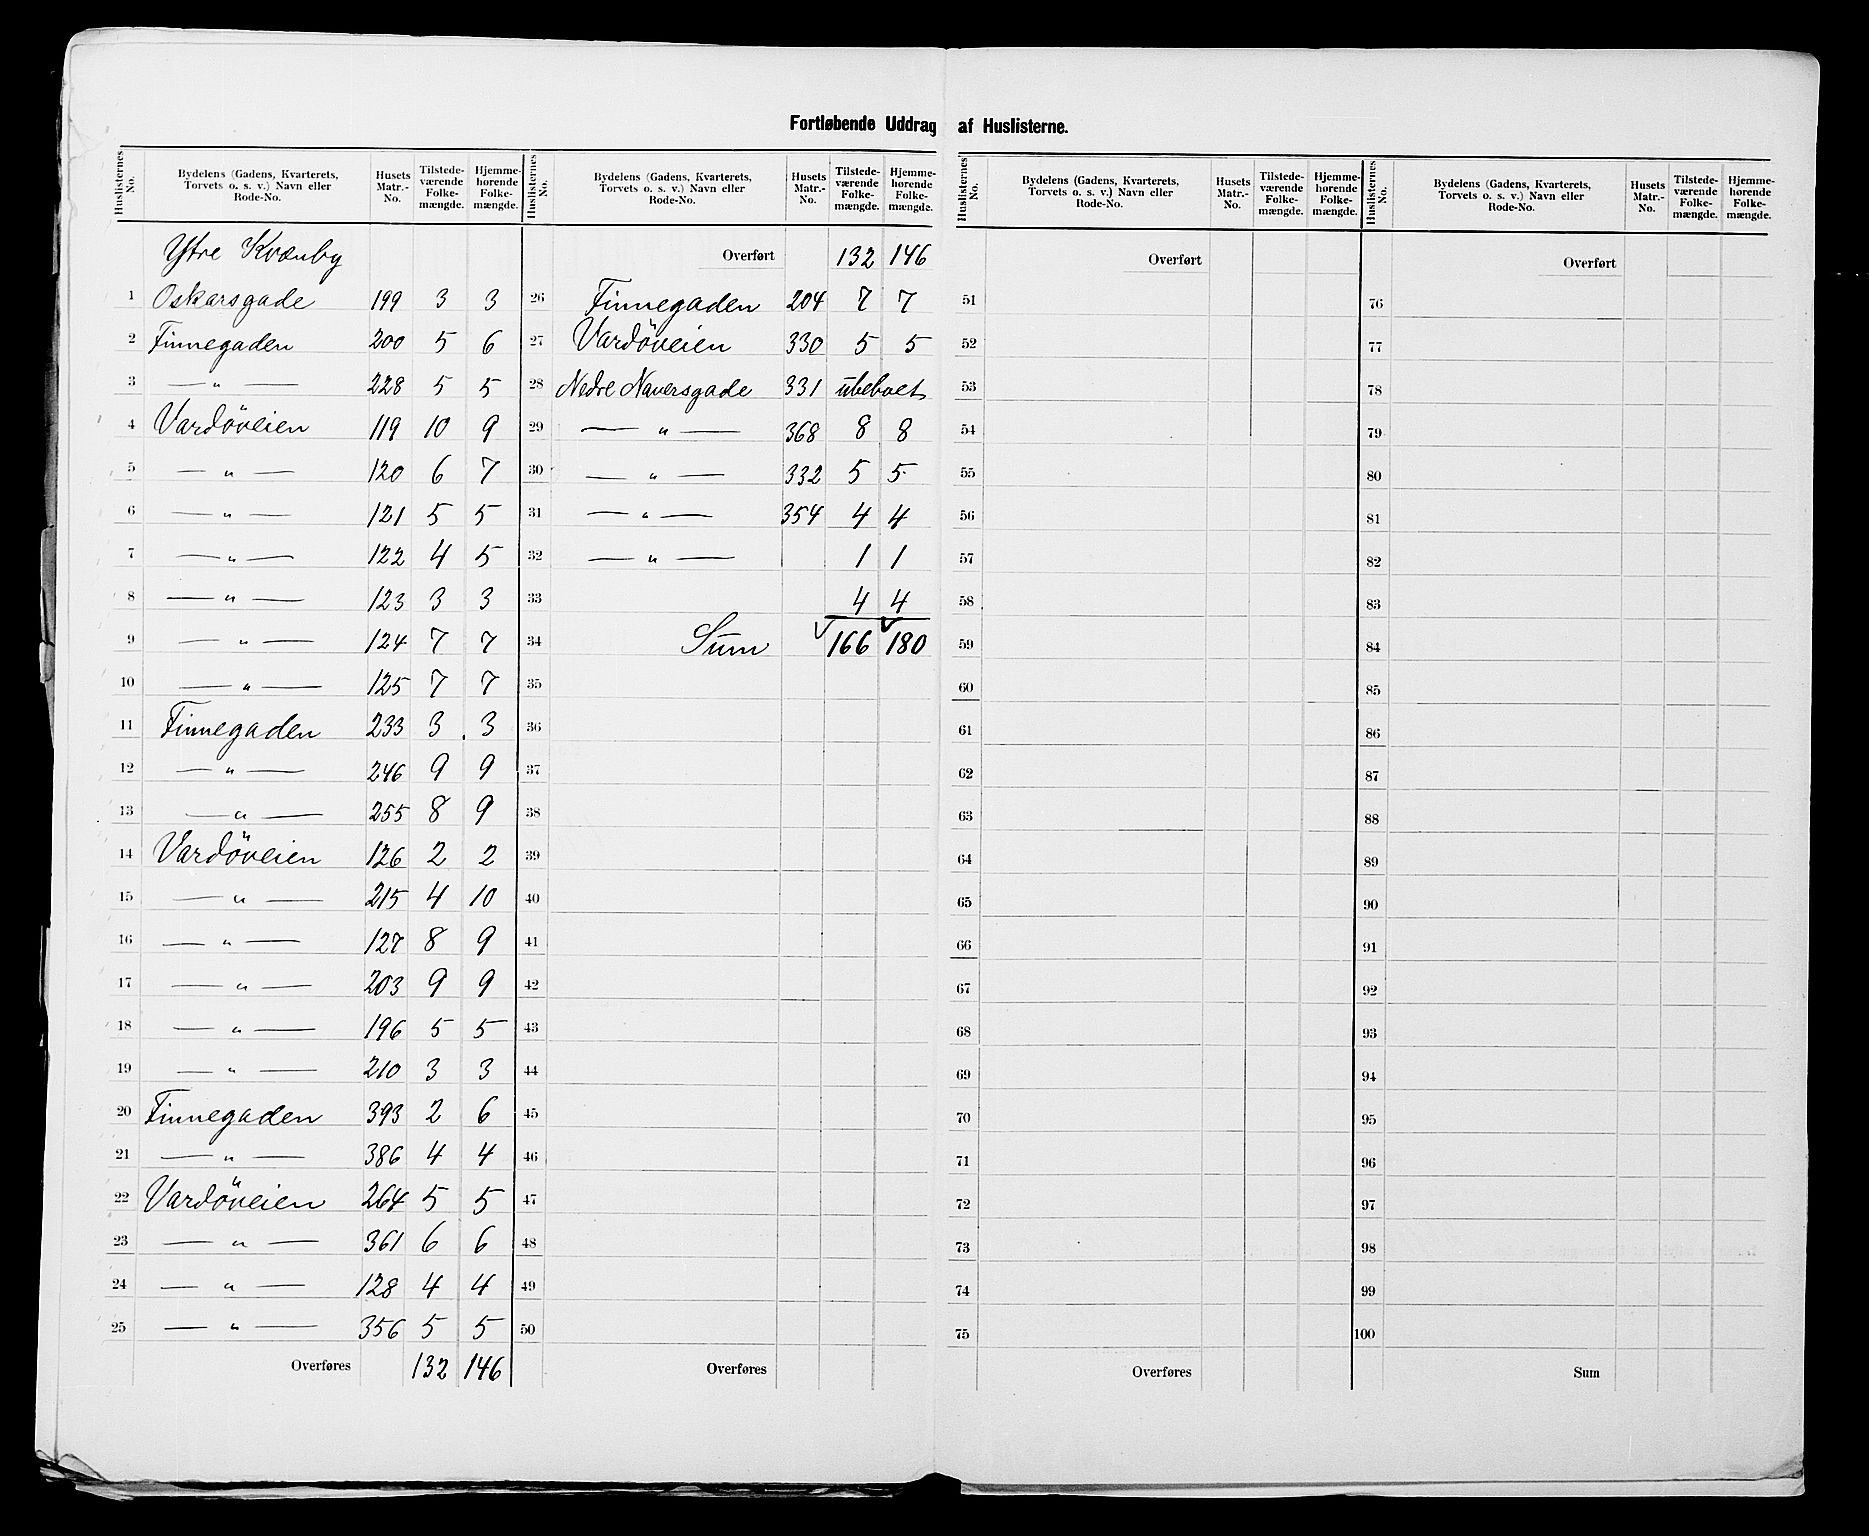 Fortløbende Uddrag af Huslisterne.
Huslisternes No. Bydelens (Gadens, Kvarterets, Torvets o. s. v.) Navn eller Rode-No. Husets Matr.-No. Tilstedeværende Folkemængde. Hjemmehørende Folkemængde.
Ytre Kvænby
1 Oskarsgade 199 3 3
2 Finnegaden 200 5 6
3 — " — 228 5 5
4 Vardöveien 119 10 9
5 — " — 120 6 7
6 — " — 121 5 5
7 — " — 122 4 5
8 — " — 123 3 3
9 — " — 124 7 7
10 — " — 125 7 7
11 Finnegaden 233 3 3
12 — " — 246 9 9
13 — " — 255 8 9
14 Vardöveien 126 2 2
15 — " — 215 4 10
16 — " — 127 8 9
17 — " — 203 9 9
18 — " — 196 5 5
19 — " — 210 3 3
20 Finnegaden 393 2 6
21 — " — 386 4 4
22 Vardöveien 264 5 5
23 — " — 361 6 6
24 — " — 128 4 4
25 — " — 356 5 5
Overføres 132 146
Huslisternes No. Bydelens (Gadens, Kvarterets, Torvets o. s. v.) Navn eller Rode-No. Husets Matr.-No. Tilstedeværende Folkemængde. Hjemmehørende Folkemængde.
Overført 132 146
26 Finnegaden 204 7 7
27 Vardöveien 330 5 5
28 Nedre Naversgade 331 ubeboet
29 — " — 368 8 8
30 — " — 332 5 5
31 — " — 354 4 4
32 — " — 1 1
33 4 4
34 Sum 166 180
35
36
37
38
39
40
41
42
43
44
45
46
47
48
49
50
Overføres
Huslisternes No. Bydelens (Gadens, Kvarterets, Torvets o. s. v.) Navn eller Rode-No. Husets Matr.-No. Tilstedeværende Folkemængde. Hjemmehørende Folkemængde.
Overført
51
52
53
54
55
56
57
58
59
60
61
62
63
64
65
66
67
68
69
70
71
72
73
74
75
Overføres
Huslisternes No. Bydelens (Gadens, Kvarterets, Torvets o. s. v.) Navn eller Rode-No. Husets Matr.-No. Tilstedeværende Folkemængde. Hjemmehørende Folkemængde.
Overført
76
77
78
79
80
81
82
83
84
85
86
87
88
89
90
91
92
93
94
95
96
97
98
99
100
Sum